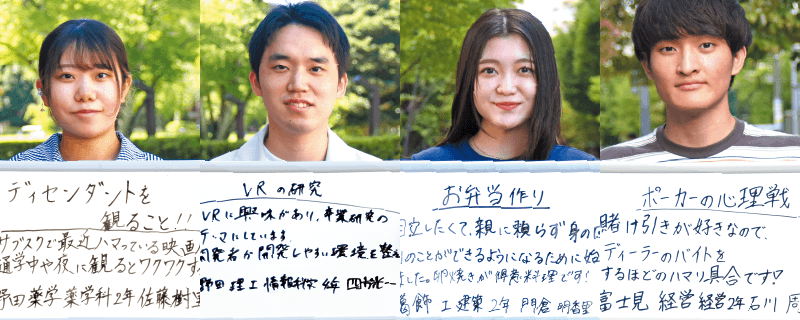 ディセンダントを
観ること!!
サブスクで最近ハマっている映画
通学中や夜に観るとワクワクす
野田 薬学 薬学科2年 佐藤樹里
VRの研究
VRに興味があり、卒業研究の
テーマにしています。
開発者が開発しやすい環境を整
野田 理工 情報科学
お弁当作り
自立したくて、親に頼らず身の
のことができるようになるために
ました。卵焼きが得意料理です!
葛飾 工 建築 2年 門倉 明香里
ポーカーの心理戦
賭け引きが好きなので、
ディーラーのバイトを
するほどのハマり具合です!
富士見 経営 経営2年 石川